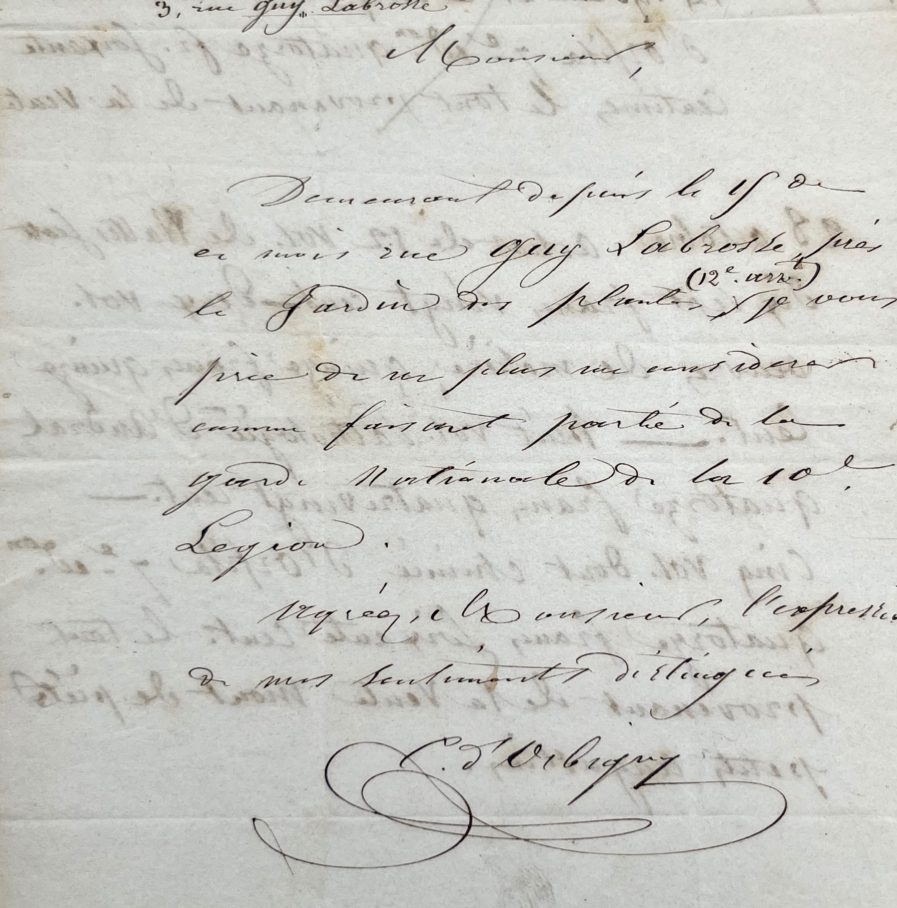 3, rue Guy Labrosse
Monsieur,
Demeurant depuis le 15 de
ce mois rue Guy Labrosse, près
(12e. arrt.)
le Jardin des plantes, je vous
prie de ne plus me considerer
comme faisant partie de la
garde Nationale de la 10e.
Legion.
Agréez, Monsieur, l'expression
de mes sentiments distingués
C. d'Orbigny